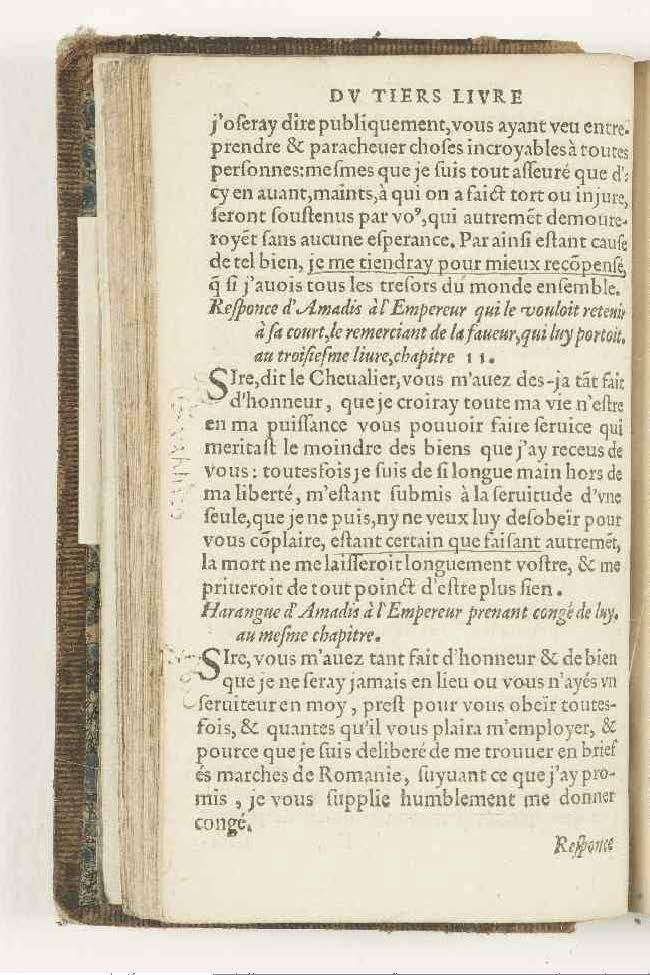 DV TIERS LIVRE
j'oſeray dire publiquement,vous ayant veu entre-
prendre & paracheuer choſes incroyables à toutes
perſonnes:meſmes que je ſuis tout aſſeuré que d'i-
cy en auant,maints,à qui on a faict tort ou injure,
ſeront ſouſtenus par voꝰ,qui autremẽt demoure-
royẽt ſans aucune eſperance. Par ainſi eſtant cauſe
de tel bien, je me tiendray pour mieux recõpenſé,
q̃ ſi j'auois tous les treſors du monde enſemble.
Reſponce d'Amadis à l'Empereur qui le vouloit retenir
à ſa court,le remerciant de la faueur,qui luy portoit.
au troiſieſme liure,chapitre 11.
SIre,dit le Cheualier,vous m'auez des-ja tãt fait
d'honneur, que je croiray toute ma vie n'eſtre
en ma puiſſance vous pouuoir faire ſeruice qui
meritaſt le moindre des biens que j'ay receus de
vous: toutesfois je ſuis de ſi longue main hors de
ma liberté, m'eſtant ſubmis à la ſeruitude d'vne
ſeule,que je ne puis,ny ne veux luy deſobeïr pour
vous cõplaire, eſtant certain que faiſant autremẽt,
la mort ne me laiſſeroit longuement voſtre, & me
priueroit de tout poinct d'eſtre plus ſien.
Harangue d'Amadis à l'Empereur prenant congé de luy.
au meſme chapitre.
SIre, vous m'auez tant fait d'honneur & de bien
que je ne ſeray jamais en lieu ou vous n'ayés vn
ſeruiteur en moy, preſt pour vous obeïr toutes-
fois, & quantes qu'il vous plaira m'employer, &
pource que je ſuis deliberé de me trouuer en brief
és marches de Romanie, ſuyuant ce que j'ay pro-
mis, je vous ſupplie humblement me donner
congé.
Reſponce